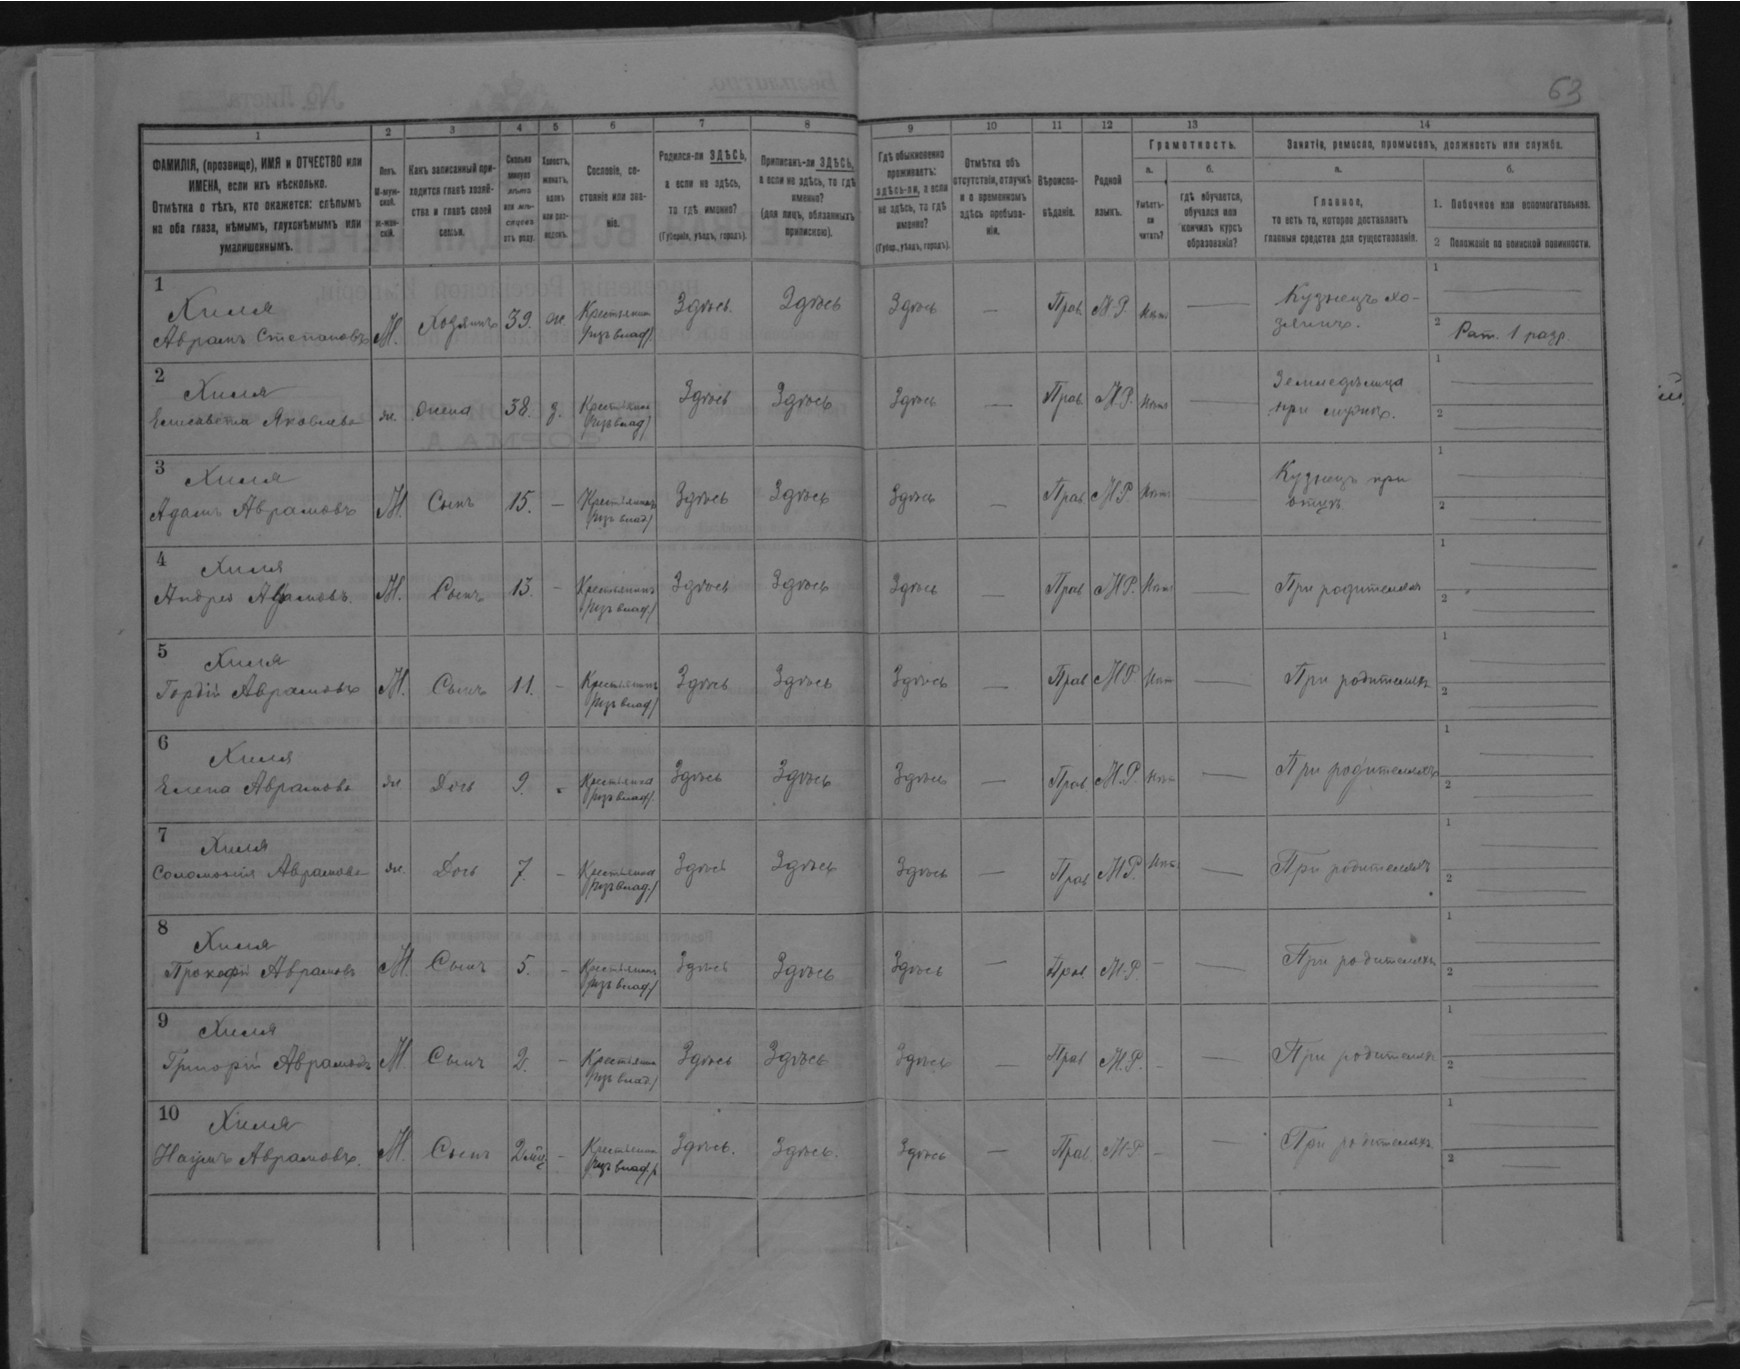 63
1 2 3 4 5 6 7 8 9 10 11 12 13 14
ФАМИЛІЯ, (прозвище), ИМЯ и ОТЧЕСТВО или
ИМЕНА, если ихъ нѣсколько.
Отмѣтка о тѣхъ, кто окажется: слѣпымъ
на оба глаза, нѣмымъ, глухонѣмымъ или
умалишеннымъ.
Полъ.
М-муж-
ской.
Ж-жен-
скій.
Какъ записанный при-
ходится главѣ хозяй-
ства и главѣ своей
семьи.
Сколько
минуло
лѣтъ
или мѣ-
сяцевъ
отъ роду.
Холостъ,
женатъ,
вдовъ
или раз-
веденъ.
Сословіе, со-
стояніе или зва-
ніе.
Родился-ли ЗДѢСЬ,
а если не здѣсь,
то гдѣ именно?
(Губернія, уѣздъ, городъ).
Приписанъ-ли ЗДѢСЬ,
а если не здѣсь, то гдѣ
именно?
(для лицъ, обязанныхъ
припискою).
Гдѣ обыкновенно
проживаетъ:
здѣсь-ли, а если
не здѣсь, то гдѣ
именно?
(Губер., уѣздъ, городъ).
Отмѣтка объ
отсутствіи, отлучкѣ
и о временномъ
здѣсь пребыва-
ніи.
Вѣроиспо-
вѣданіе.
Родной
языкъ.
Грамотность.
а.
Умѣетъ-
ли
читать?
б.
гдѣ обучается,
обучался или
кончилъ курсъ
образованія?
Занятіе, ремесло, промыселъ, должность или служба.
а.
Главное,
то есть то, которое доставляетъ
главныя средства для существованія.
б.
1. Побочное или вспомогательное.
2 Положеніе по воинской повинности.
1
Хиля
Аврамъ Степановъ М. Хозяинъ 39. ж. Крестьянин /изъ влад./ Здѣсь. Здѣсь Здѣсь — Прав. М.Р. Нѣтъ — Кузнецъ хо-
зяинъ.
1 —
2 Рат. 1 разр.
2
Хиля
Елисавета Яковлева ж. жена 38. з. Крестьянка /изъ влад/ Здѣсь Здѣсь Здѣсь — Прав. М.Р. Нѣтъ — Земледѣлица
при мужѣ.
1 —
2 —
3
Хиля
Адамъ Аврамовъ М. Сынъ 15. — Крестьянинъ /изъ влад/ Здѣсь Здѣсь Здѣсь — Прав М.Р. Нѣтъ — Кузнецъ при
отцѣ
1 —
2 —
4
Хиля
Андрей Аврамовъ. М. Сынъ 13. — Крестьянинъ /изъ влад./ Здѣсь Здѣсь Здѣсь — Прав М.Р. Нѣтъ — При родителяхъ
1
2 —
5
Хиля
Гордій Аврамовъ М. Сынъ 11. — Крестьянинъ /изъ влад/ Здѣсь Здѣсь Здѣсь — Прав М.Р Нѣтъ — При родителяхъ
1 —
2 —
6
Хиля
Елена Аврамова ж Дочь 9. - Крестьянка /изъ влад/. Здѣсь Здѣсь Здѣсь — Прав. М.Р. Нѣтъ — При родителяхъ
1 —
2 —
7
Хиля
Соломонія Аврамова ж. Дочь 7. — Крестьянка /изъ влад./ Здѣсь Здѣсь Здѣсь — Прав М.Р. Нѣтъ — При родителяхъ
1 —
2 —
8
Хиля
Прокофій Аврамовъ М. Сынъ 5. — Крестьянинъ /изъ влад./ Здѣсь Здѣсь Здѣсь — Прав. М.Р. — — При родителяхъ
1 —
2 —
9
Хиля
Григорій Аврамовъ М. Сынъ 2. — Крестьянин /изъ влад/ Здѣсь Здѣсь Здѣсь — Прав М.Р. — — При родителяхъ
1 —
2 —
10
Хиля
Наумъ Аврамовъ. М. Сынъ 2 мѣс — Крестьянин /изъ влад./ Здѣсь. Здѣсь. Здѣсь — Прав М.Р — — При родителяхъ
1 —
2 —